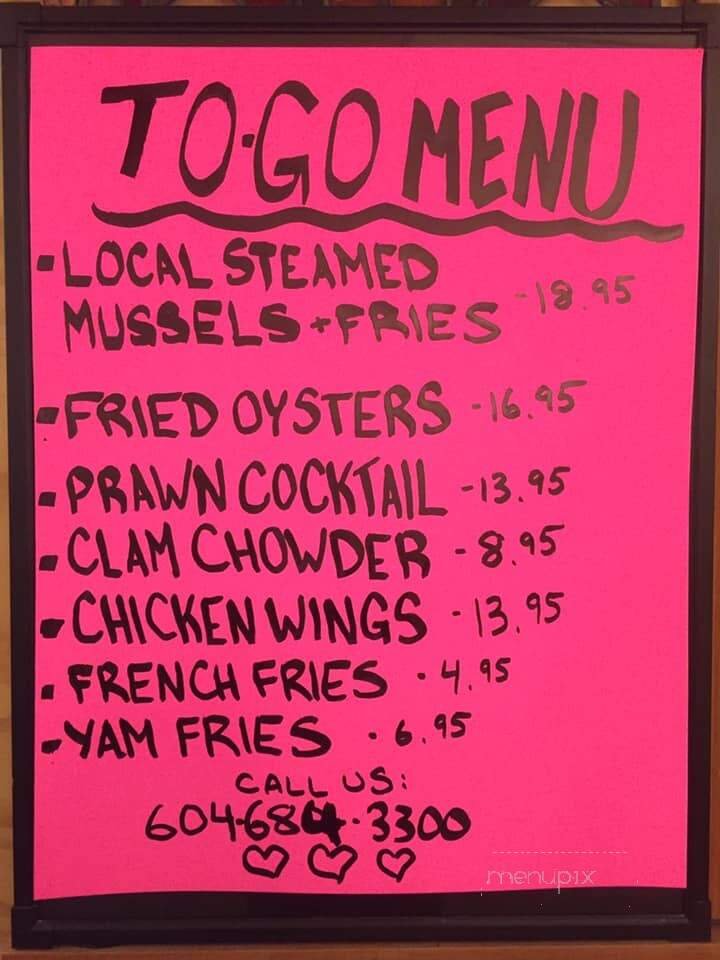 TO-GO MENU
- LOCAL STEAMED
MUSSELS + FRIES - 18.95
- FRIED OYSTERS - 16.95
- PRAWN COCKTAIL - 13.95
- CLAM CHOWDER - 8.95
- CHICKEN WINGS - 13.95
- FRENCH FRIES - 4.95
- YAM FRIES - 6.95
CALL US:
604-684-3300
menupix